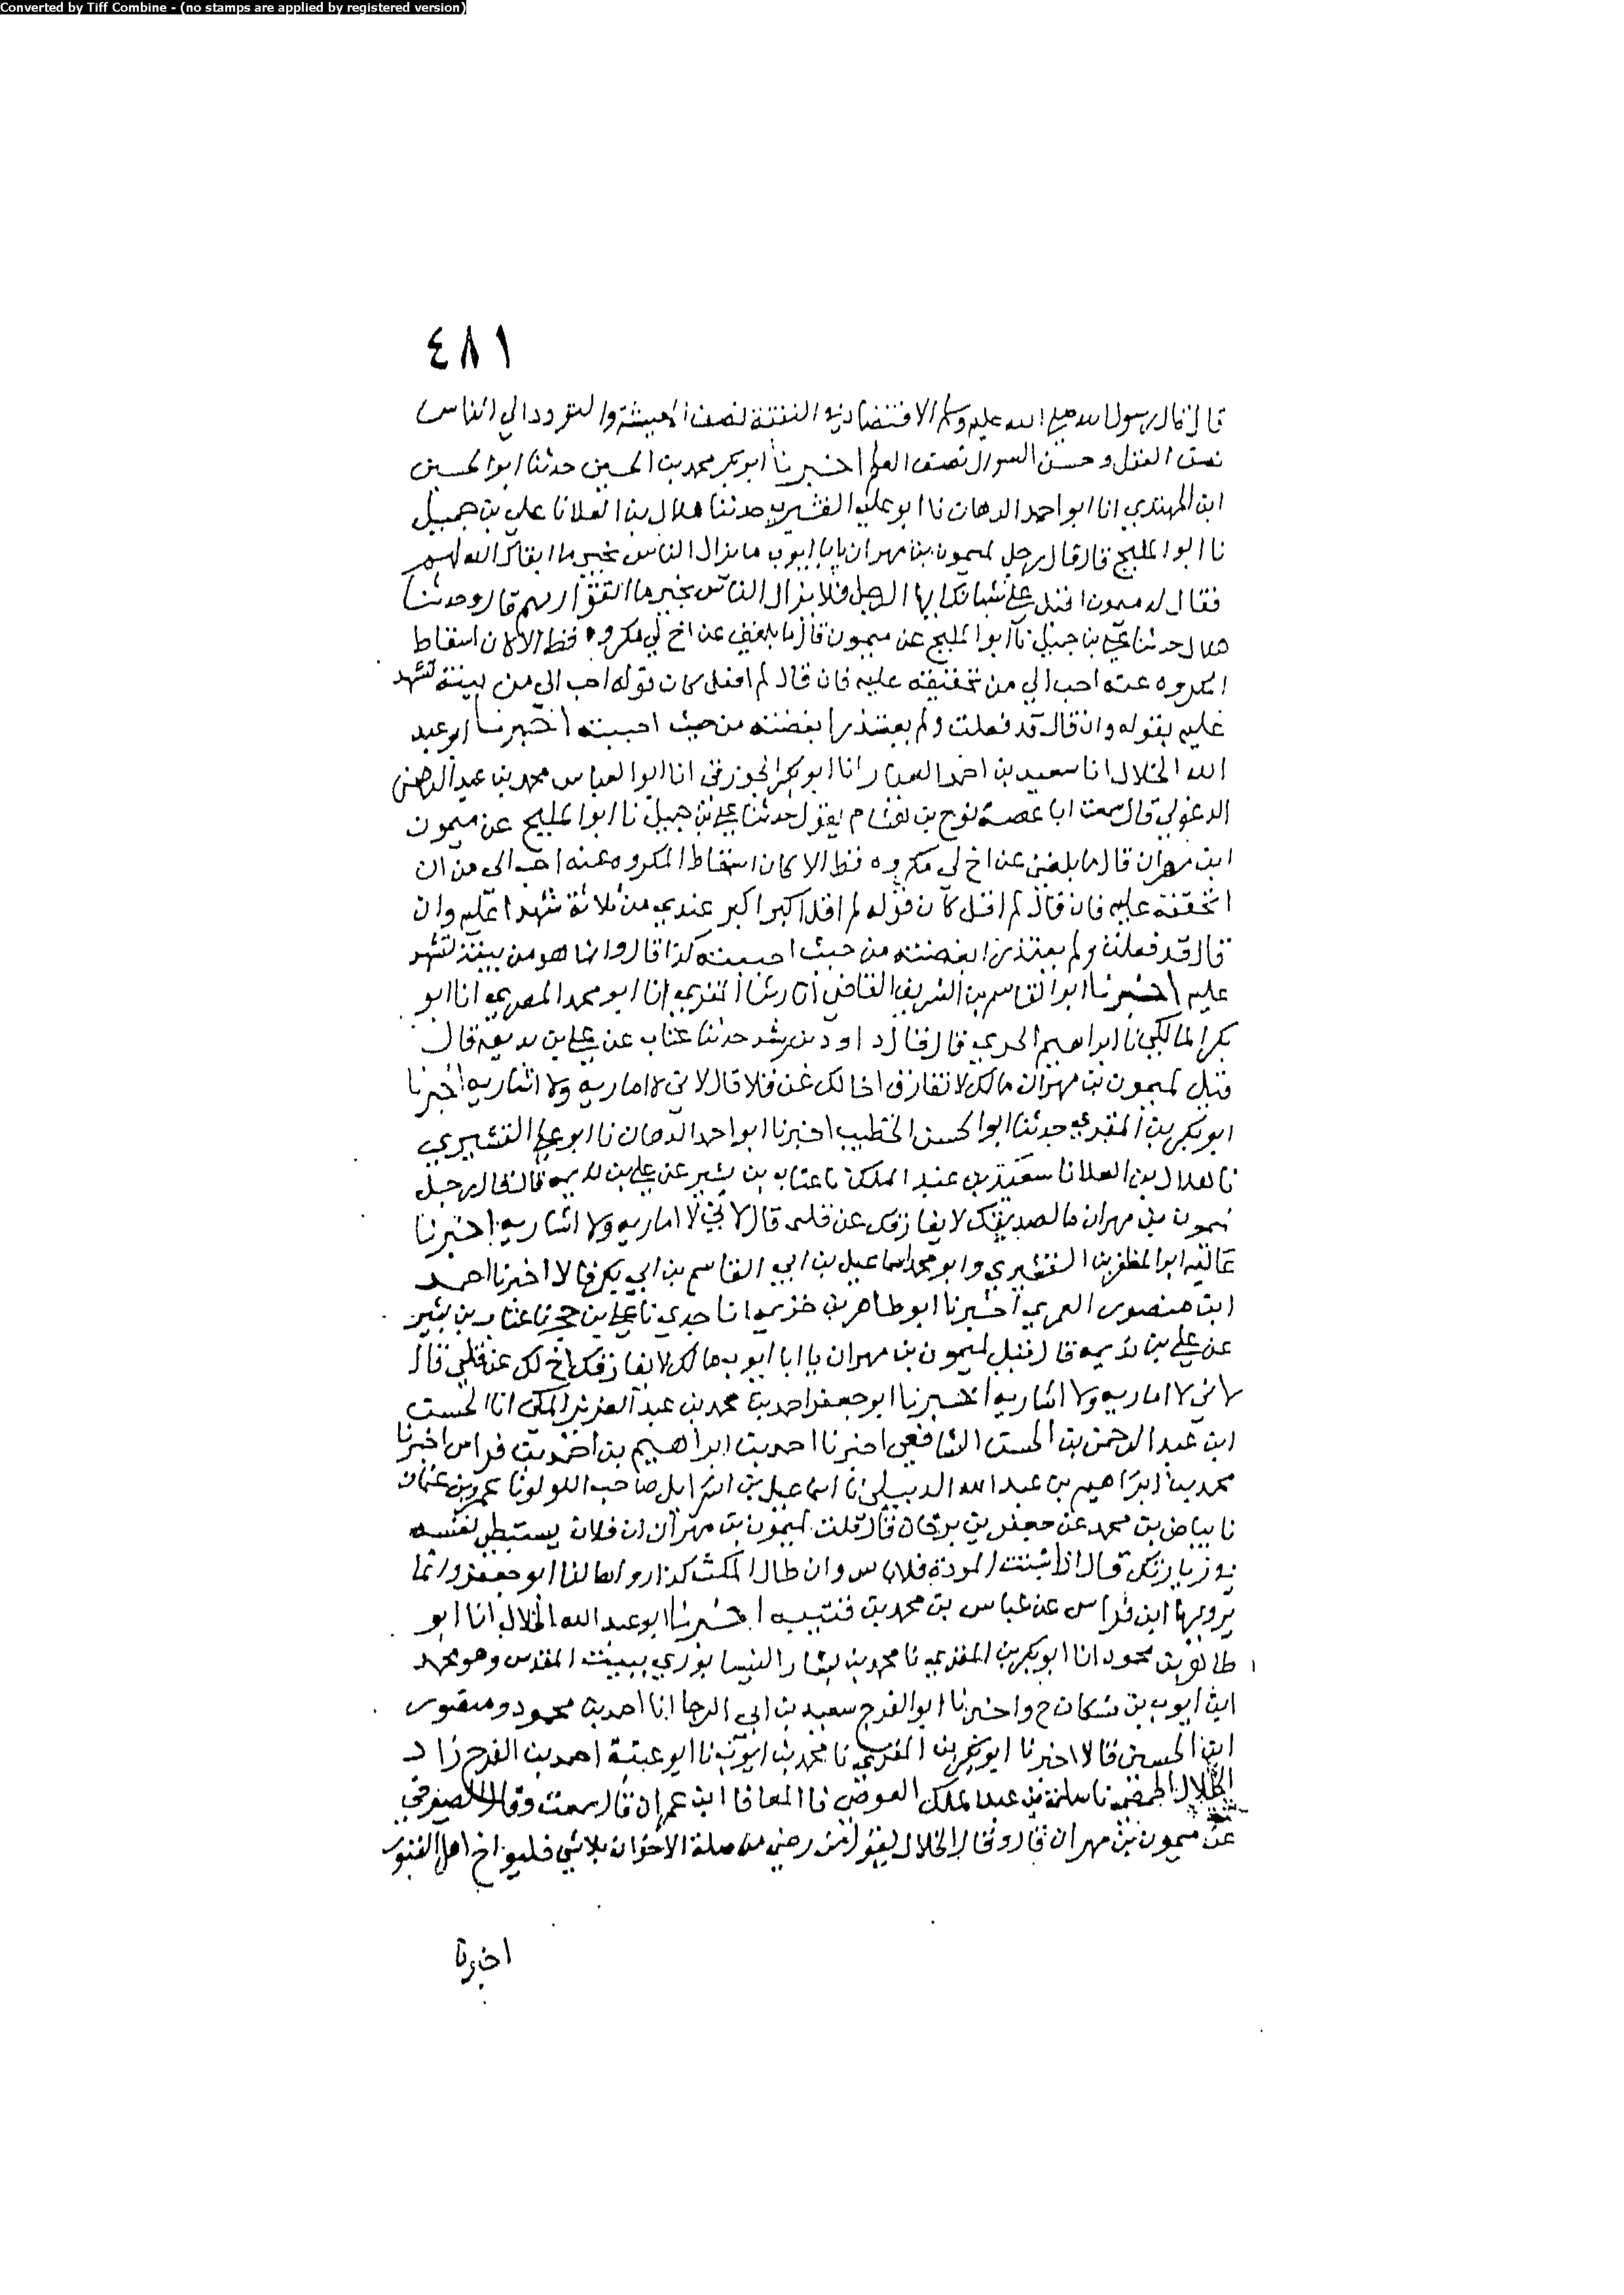 Converted by Tiff Combine - (no stamps are applied by registered version)
٤٨١
قال قال رسول الله صلى الله عليه وسلم الاقتصاد في النفقة نصف المعيشة والتودد الى الناس
نصف العقل وحسن السوال نصف العلم اخبرنا ابو بكر محمد بن الحسين حدثنا ابو الحسين
ابن المهتدي انا ابو احمد الدهان نا ابو علي القشيري حدثنا هلال بن العلا نا علي بن جميل
نا ابو المليح قال قال رجل لميمون بن مهران يا ابا ايوب ما يزال الناس بخير ما ابقاك الله لهم
فقال له ميمون اقبل على شانك ايها الرجل فلا يزال الناس بخير ما اتقوا ربهم قال وحدثنا
هلال حدثنا علي بن جميل نا ابو المليح عن ميمون قال ما بلغني عن اخ لي مكروه قط الا كان اسقاط
المكروه عنه احب الي من تحقيقه عليه فان قال لم افعل كان قوله احب الي من بينة تشهد
عليه بقوله وان قال قد فعلت ولم يعتذر ابغضته من حيث احببته اخبرنا ابو عبد
الله الخلال انا سعيد بن احمد العيار انا ابو بكر الجوزقي انا ابو العباس محمد بن عبد الرحمن
الدغولي قال سمعت ابا عصمة نوح بن هشام يقول حدثنا علي بن جميل نا ابو المليح عن ميمون
ابن مهران قال ما بلغني عن اخ لي مكروه قط الا كان اسقاط المكروه عنه احب الي من ان
احققه عليه فان قال لم اقل كان قوله لم اقل اكبر اكبر عندي من ثلاثة شهدا عليه وان
قال قد فعلت ولم يعتذر ابغضته من حيث احببته كذا قال وانما هو من بينة تشهد
عليه اخبرنا ابو القاسم بن الشريف القاضي انا رشا المقري انا ابو محمد المصري انا ابو
بكر المالكي نا ابراهيم الحربي قال قال داود بن رشد حدثنا عتاب عن علي بن بديمة قال
قيل لميمون بن مهران مالك لا تفارق اخا لك عن قلا قال لاني لا اماريه ولا اشاريه اخبرنا
ابو بكر بن المقري حدثنا ابو الحسن الخطيب اخبرنا ابو احمد الدهان نا ابو علي القشيري
نا هلال بن العلا نا سعيد بن عبد الملك نا عتاب بن بشير عن علي بن بديمة قال قال رجل
لميمون بن مهران ما لصديقك لا يفارقك عن قلى قال لاني لا اماريه ولا اشاريه اخبرنا
عاليه ابو المظفر بن القشيري وابو محمد اسماعيل بن ابي القاسم بن ابي بكر قالا اخبرنا احمد
ابن منصور المغربي اخبرنا ابو طاهر بن خزيمه انا جدي نا علي بن حجر نا عتاب بن بشير
عن علي بن بذيمه قال قيل لميمون بن مهران يا ابا ايوب مالك لا يفارقك اخ لك عن قلى قال
لاني لا اماريه ولا اشاريه اخبرنا ابو جعفر احمد بن محمد بن عبد العزيز المكي انا الحسن
ابن عبد الرحمن بن الحسن الشافعي اخبرنا احمد بن ابراهيم بن احمد بن فراس اخبرنا
محمد بن ابراهيم بن عبد الله الديبلي نا اسماعيل بن اسرايل صاحب اللولو نا عمرو بن عثمان
نا بياض بن محمد عن جعفر بن برقان قال قلت لميمون بن مهران ان فلان يستبطي نفسه
في زيارتك قال اذا ثبتت المودة فلا باس وان طال المكث كذا رواها لنا ابو جعفر وانما
يرويها ابن فراس عن عباس بن محمد بن قتيبه اخبرنا ابو عبد الله الخلال انا ابو
طاهر بن محمود انا ابو بكر بن المقري نا محمد بن بشار النيسابوري ببيت المقدس وهو محمد
ابن ايوب بن مشكان ح واخبرنا ابو الفرج سعيد بن ابي الرجا انا احمد بن محمود ومنصور
ابن الحسين قالا اخبرنا ابو بكر بن المقري نا محمد بن ايوب نا ابو عتبة احمد بن الفرج زاد
الخلال الحمصي نا سلمة بن عبد الملك العوصي نا المعافا ابن عمران قال سمعت وقال الصيرفي
عن ميمون بن مهران قال وقال الخلال يقول من رضي من صلة الاخوان بلاشي فليواخ اهل القبور
اخبرنا